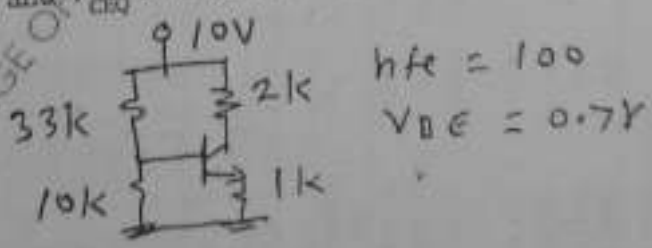 GE O
10V
33k
2k
10k
1k
hfe = 100
VBE = 0.7V